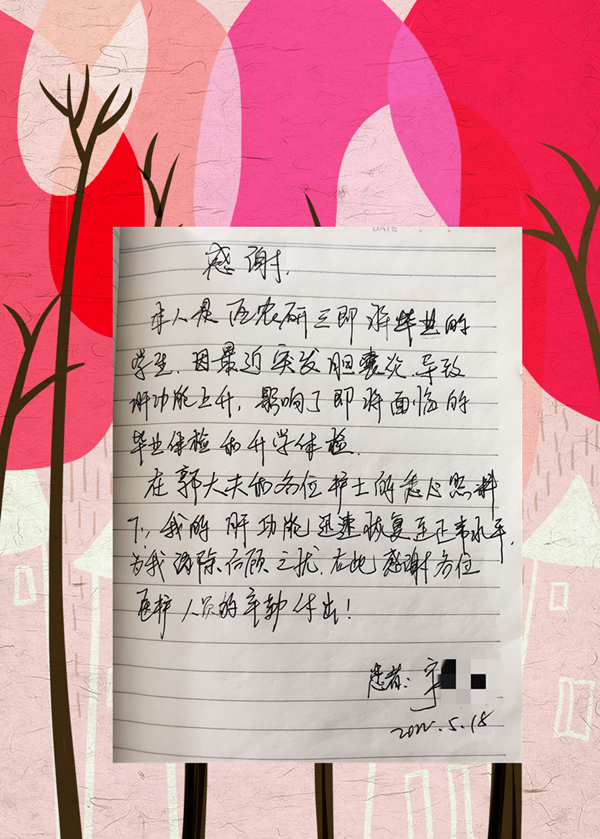 DATE
感谢.
本人是西农研三即将毕业的
学生.因最近突发胆囊炎.导致
肝功能上升,影响了即将面临的
毕业体检和升学体检.
在郭大夫和各位护士的悉心照料
下,我的肝功能迅速恢复至正常水平,
为我消除后顾之忧.在此感谢各位
医护人员的辛勤付出!
患者:宁
2022.5.18